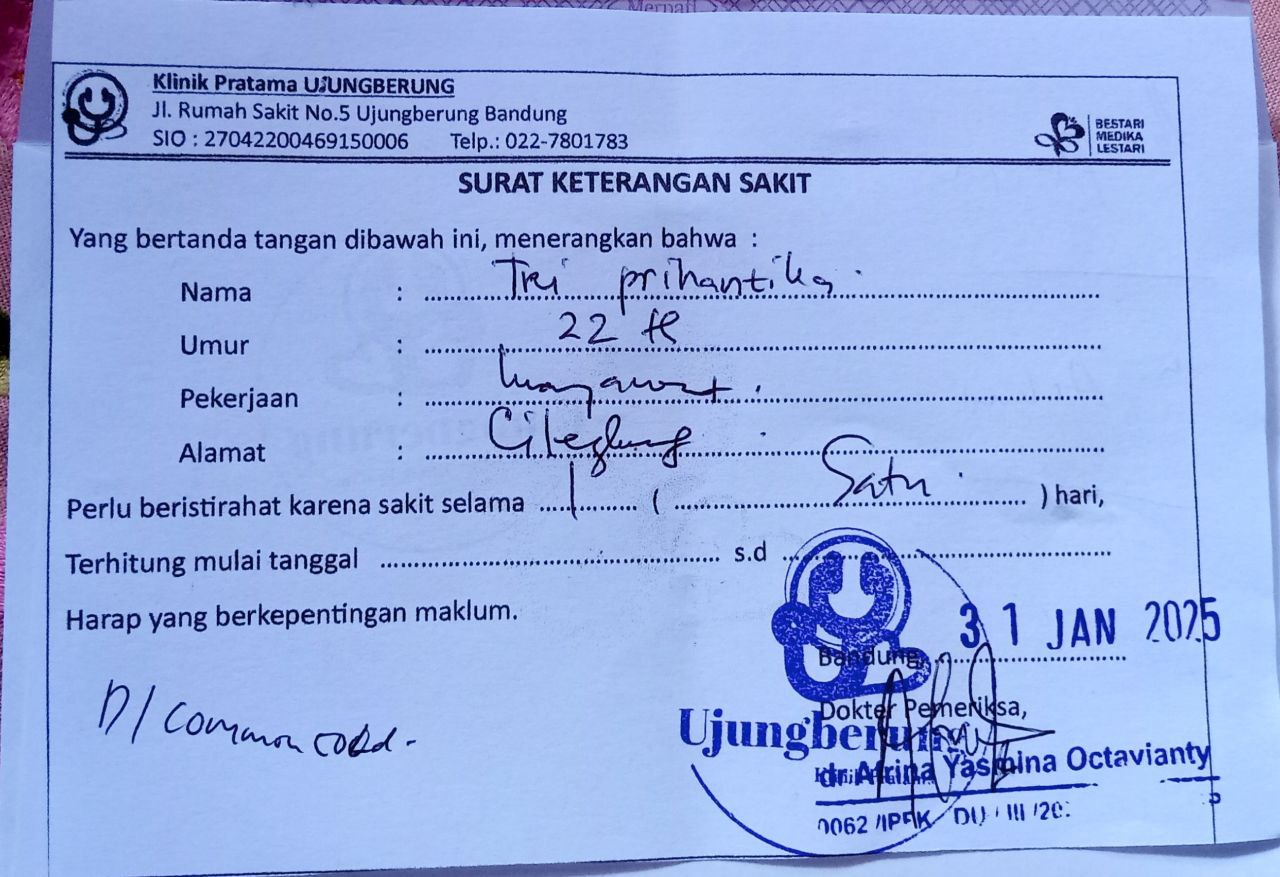 Klinik Pratama UJUNGBERUNG
Jl. Rumah Sakit No.5 Ujungberung Bandung
SIO : 27042200469150006 Telp.: 022-7801783
BESTARI
MEDIKA
LESTARI
SURAT KETERANGAN SAKIT
Yang bertanda tangan dibawah ini, menerangkan bahwa :
Nama : Tri prihantika
Umur : 22 th
Pekerjaan :
Alamat :
Perlu beristirahat karena sakit selama 1 ( Satu ) hari,
Terhitung mulai tanggal s.d
Harap yang berkepentingan maklum.
31 JAN 2025
Bandung,
Dokter Pemeriksa,
D/ Common cold.
Ujungberung
dr. Afrina Yasmina Octavianty